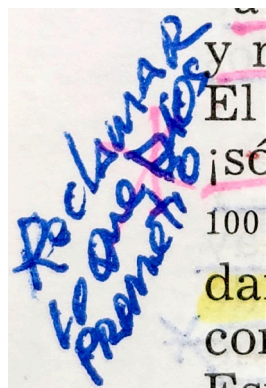 Reclamar
lo que Dios
prometió
y
El
¡só
100
dar
con
Es